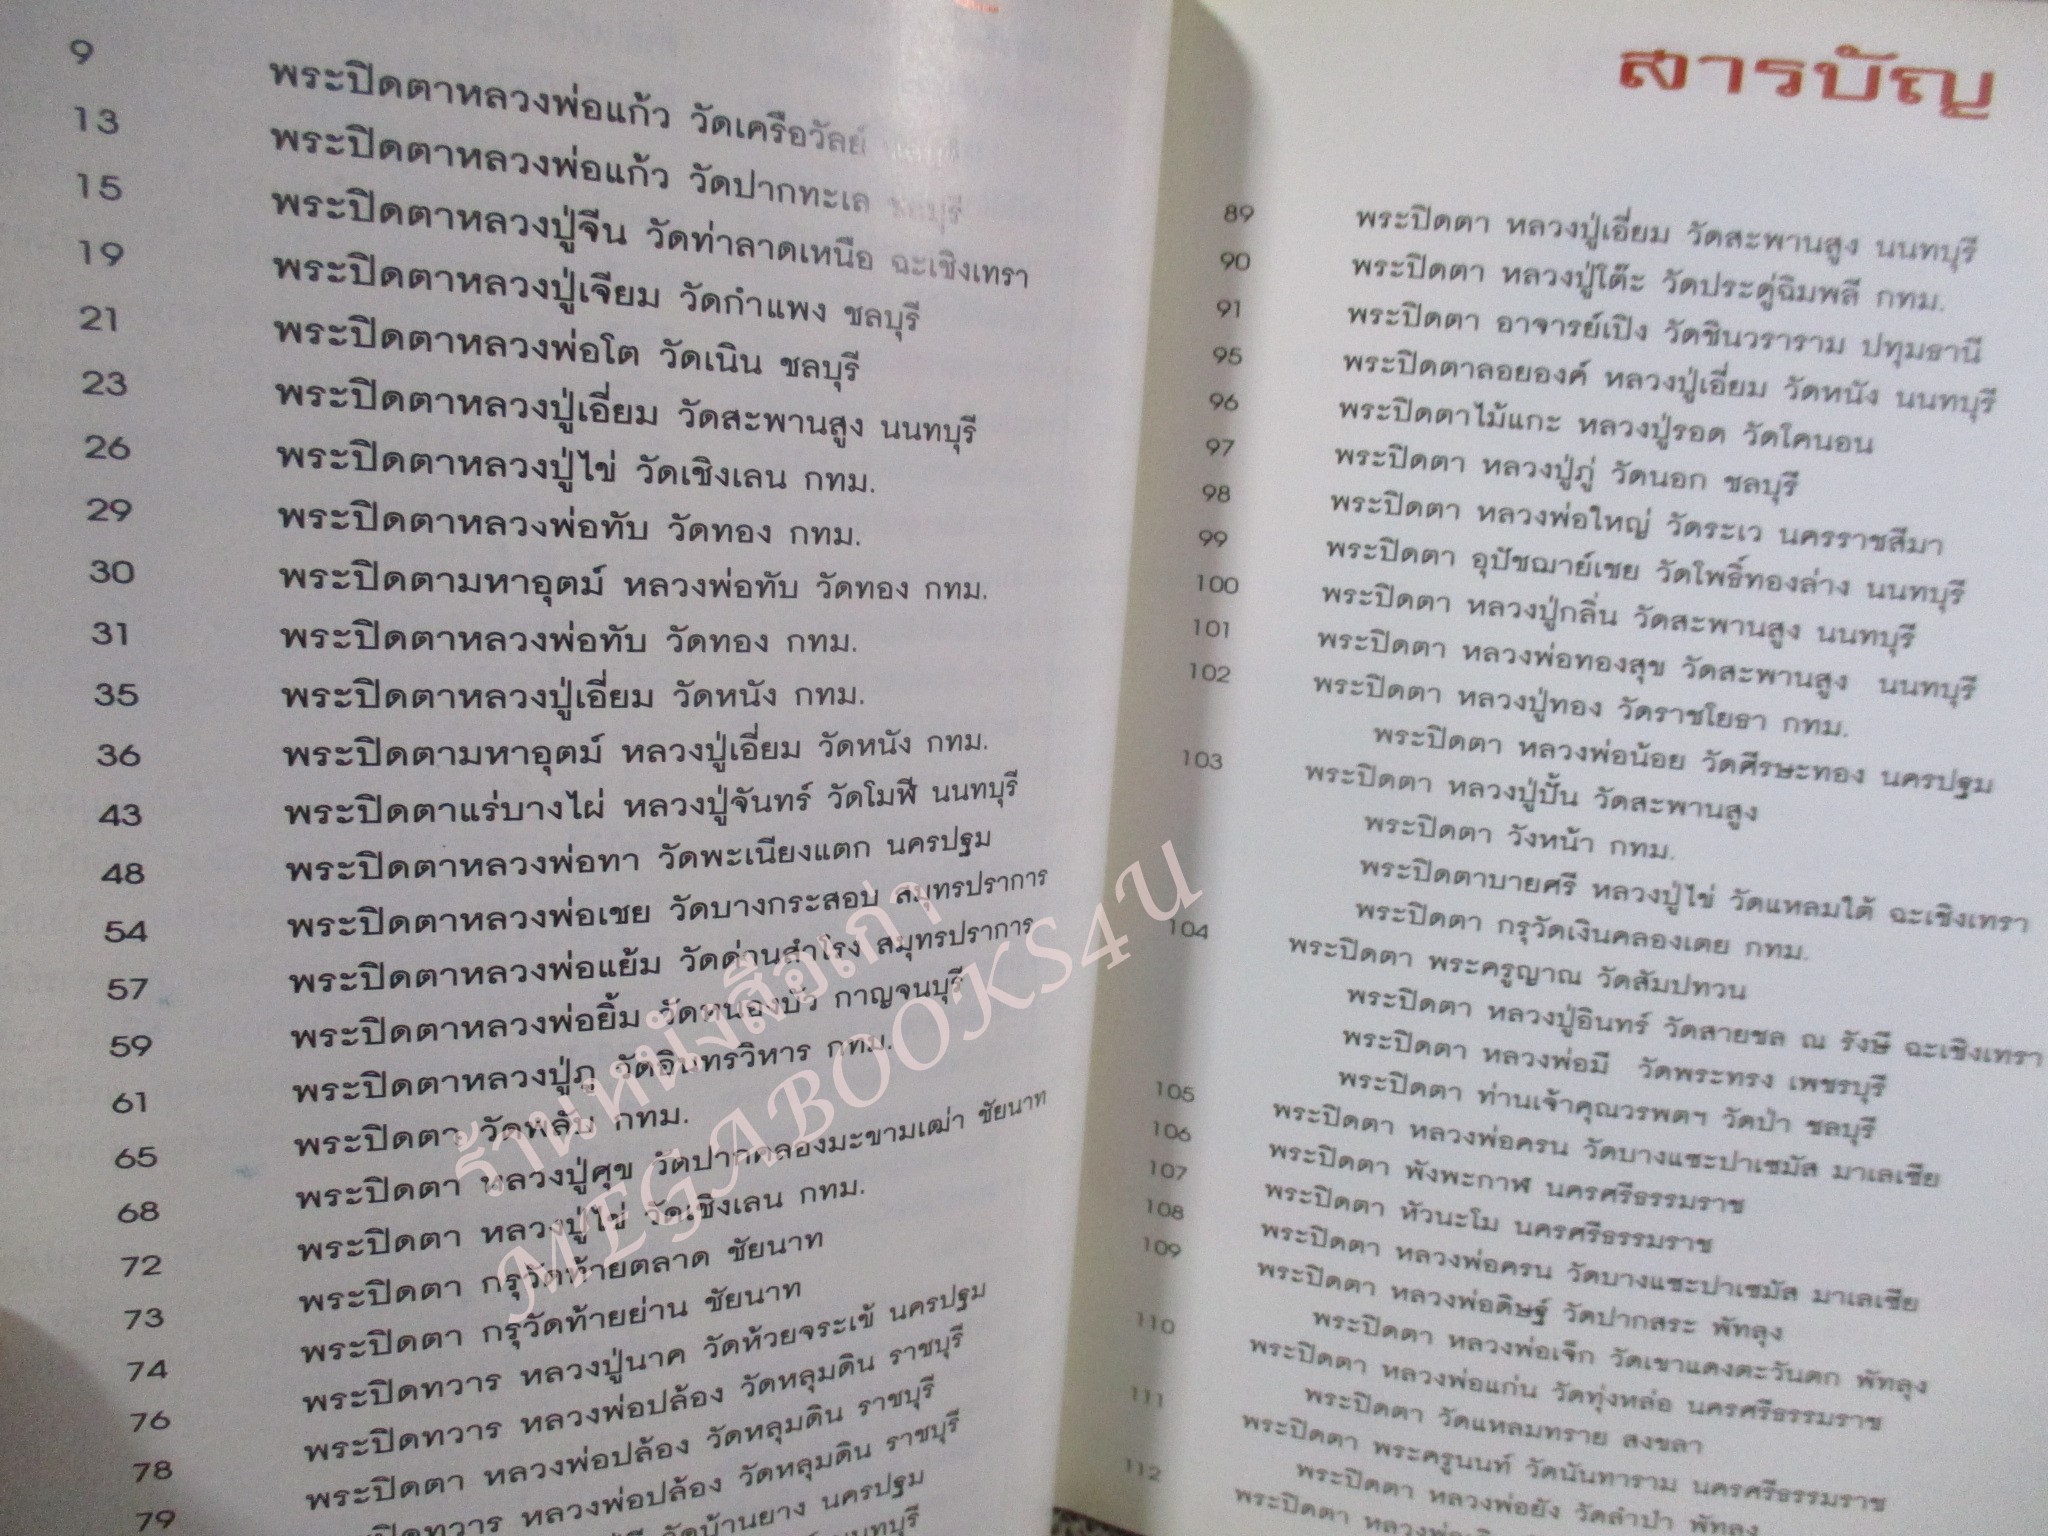 9 พระปิดตาหลวงพ่อแก้ว วัดเครือวัลย์
13 พระปิดตาหลวงพ่อแก้ว วัดปากทะเล ชลบุรี
15 พระปิดตาหลวงปู่จีน วัดท่าลาดเหนือ ฉะเชิงเทรา
19 พระปิดตาหลวงปู่เจียม วัดกำแพง ชลบุรี
21 พระปิดตาหลวงพ่อโต วัดเนิน ชลบุรี
23 พระปิดตาหลวงปู่เอี่ยม วัดสะพานสูง นนทบุรี
26 พระปิดตาหลวงปู่ไข่ วัดเชิงเลน กทม.
29 พระปิดตาหลวงพ่อทับ วัดทอง กทม.
30 พระปิดตามหาอุตม์ หลวงพ่อทับ วัดทอง กทม.
31 พระปิดตาหลวงพ่อทับ วัดทอง กทม.
35 พระปิดตาหลวงปู่เอี่ยม วัดหนัง กทม.
36 พระปิดตามหาอุตม์ หลวงปู่เอี่ยม วัดหนัง กทม.
43 พระปิดตาแร่บางไผ่ หลวงปู่จันทร์ วัดโมฬี นนทบุรี
48 พระปิดตาหลวงพ่อทา วัดพะเนียงแตก นครปฐม
54 พระปิดตาหลวงพ่อเชย วัดบางกระสอบ สมุทรปราการ
57 พระปิดตาหลวงพ่อแย้ม วัดด่านสำโรง สมุทรปราการ
59 พระปิดตาหลวงพ่อยิ้ม วัดหนองบัว กาญจนบุรี
61 พระปิดตาหลวงปู่ภู วัดอินทรวิหาร กทม.
65 พระปิดตา วัดพลับ กทม.
68 พระปิดตา หลวงปู่ศุข วัดปากคลองมะขามเฒ่า ชัยนาท
72 พระปิดตา หลวงปู่ไข่ วัดเชิงเลน กทม.
73 พระปิดตา กรุวัดท้ายตลาด ชัยนาท
74 พระปิดตา กรุวัดท้ายย่าน ชัยนาท
76 พระปิดทวาร หลวงปู่นาค วัดห้วยจระเข้ นครปฐม
78 พระปิดทวาร หลวงพ่อปล้อง วัดหลุมดิน ราชบุรี
79 พระปิดตา หลวงพ่อปล้อง วัดหลุมดิน ราชบุรี
ปิดทวาร หลวงพ่อปล้อง วัดหลุมดิน ราชบุรี
วัดบ้านยาง นครปฐม
นนทบุรี
สารบัญ
89 พระปิดตา หลวงปู่เอี่ยม วัดสะพานสูง นนทบุรี
90 พระปิดตา หลวงปู่โต๊ะ วัดประดู่ฉิมพลี กทม.
91 พระปิดตา อาจารย์เปิง วัดชินวราราม ปทุมธานี
95 พระปิดตาลอยองค์ หลวงปู่เอี่ยม วัดหนัง นนทบุรี
96 พระปิดตาไม้แกะ หลวงปู่รอด วัดโคนอน
97 พระปิดตา หลวงปู่ภู่ วัดนอก ชลบุรี
98 พระปิดตา หลวงพ่อใหญ่ วัดระเว นครราชสีมา
99 พระปิดตา อุปัชฌาย์เชย วัดโพธิ์ทองล่าง นนทบุรี
100 พระปิดตา หลวงปู่กลิ่น วัดสะพานสูง นนทบุรี
101 พระปิดตา หลวงพ่อทองสุข วัดสะพานสูง นนทบุรี
102 พระปิดตา หลวงปู่ทอง วัดราชโยธา กทม.
พระปิดตา หลวงพ่อน้อย วัดศีรษะทอง นครปฐม
103 พระปิดตา หลวงปู่ปั้น วัดสะพานสูง
พระปิดตา วังหน้า กทม.
พระปิดตาบายศรี หลวงปู่ไข่ วัดแหลมใต้ ฉะเชิงเทรา
พระปิดตา กรุวัดเงินคลองเตย กทม.
104 พระปิดตา พระครูญาณ วัดสัมปทวน
พระปิดตา หลวงปู่อินทร์ วัดสายชล ณ รังษี ฉะเชิงเทรา
พระปิดตา หลวงพ่อมี วัดพระทรง เพชรบุรี
พระปิดตา ท่านเจ้าคุณวรพตฯ วัดป่า ชลบุรี
105 พระปิดตา หลวงพ่อครน วัดบางแซะปาเซมัส มาเลเซีย
106 พระปิดตา พังพะกาฬ นครศรีธรรมราช
107 พระปิดตา หัวนะโม นครศรีธรรมราช
108 พระปิดตา หลวงพ่อครน วัดบางแซะปาเซมัส มาเลเซีย
109 พระปิดตา หลวงพ่อดิษฐ์ วัดปากสระ พัทลุง
พระปิดตา หลวงพ่อเจ็ก วัดเขาแดงตะวันตก พัทลุง
110 พระปิดตา หลวงพ่อแก่น วัดทุ่งหล่อ นครศรีธรรมราช
พระปิดตา วัดแหลมทราย สงขลา
111 พระปิดตา พระครูนนท์ วัดนันทาราม นครศรีธรรมราช
พระปิดตา หลวงพ่อยัง วัดลำปำ พัทลุง
112 พระปิดตา
ร้านหนังสือเก่า
MEGABOOKS4U